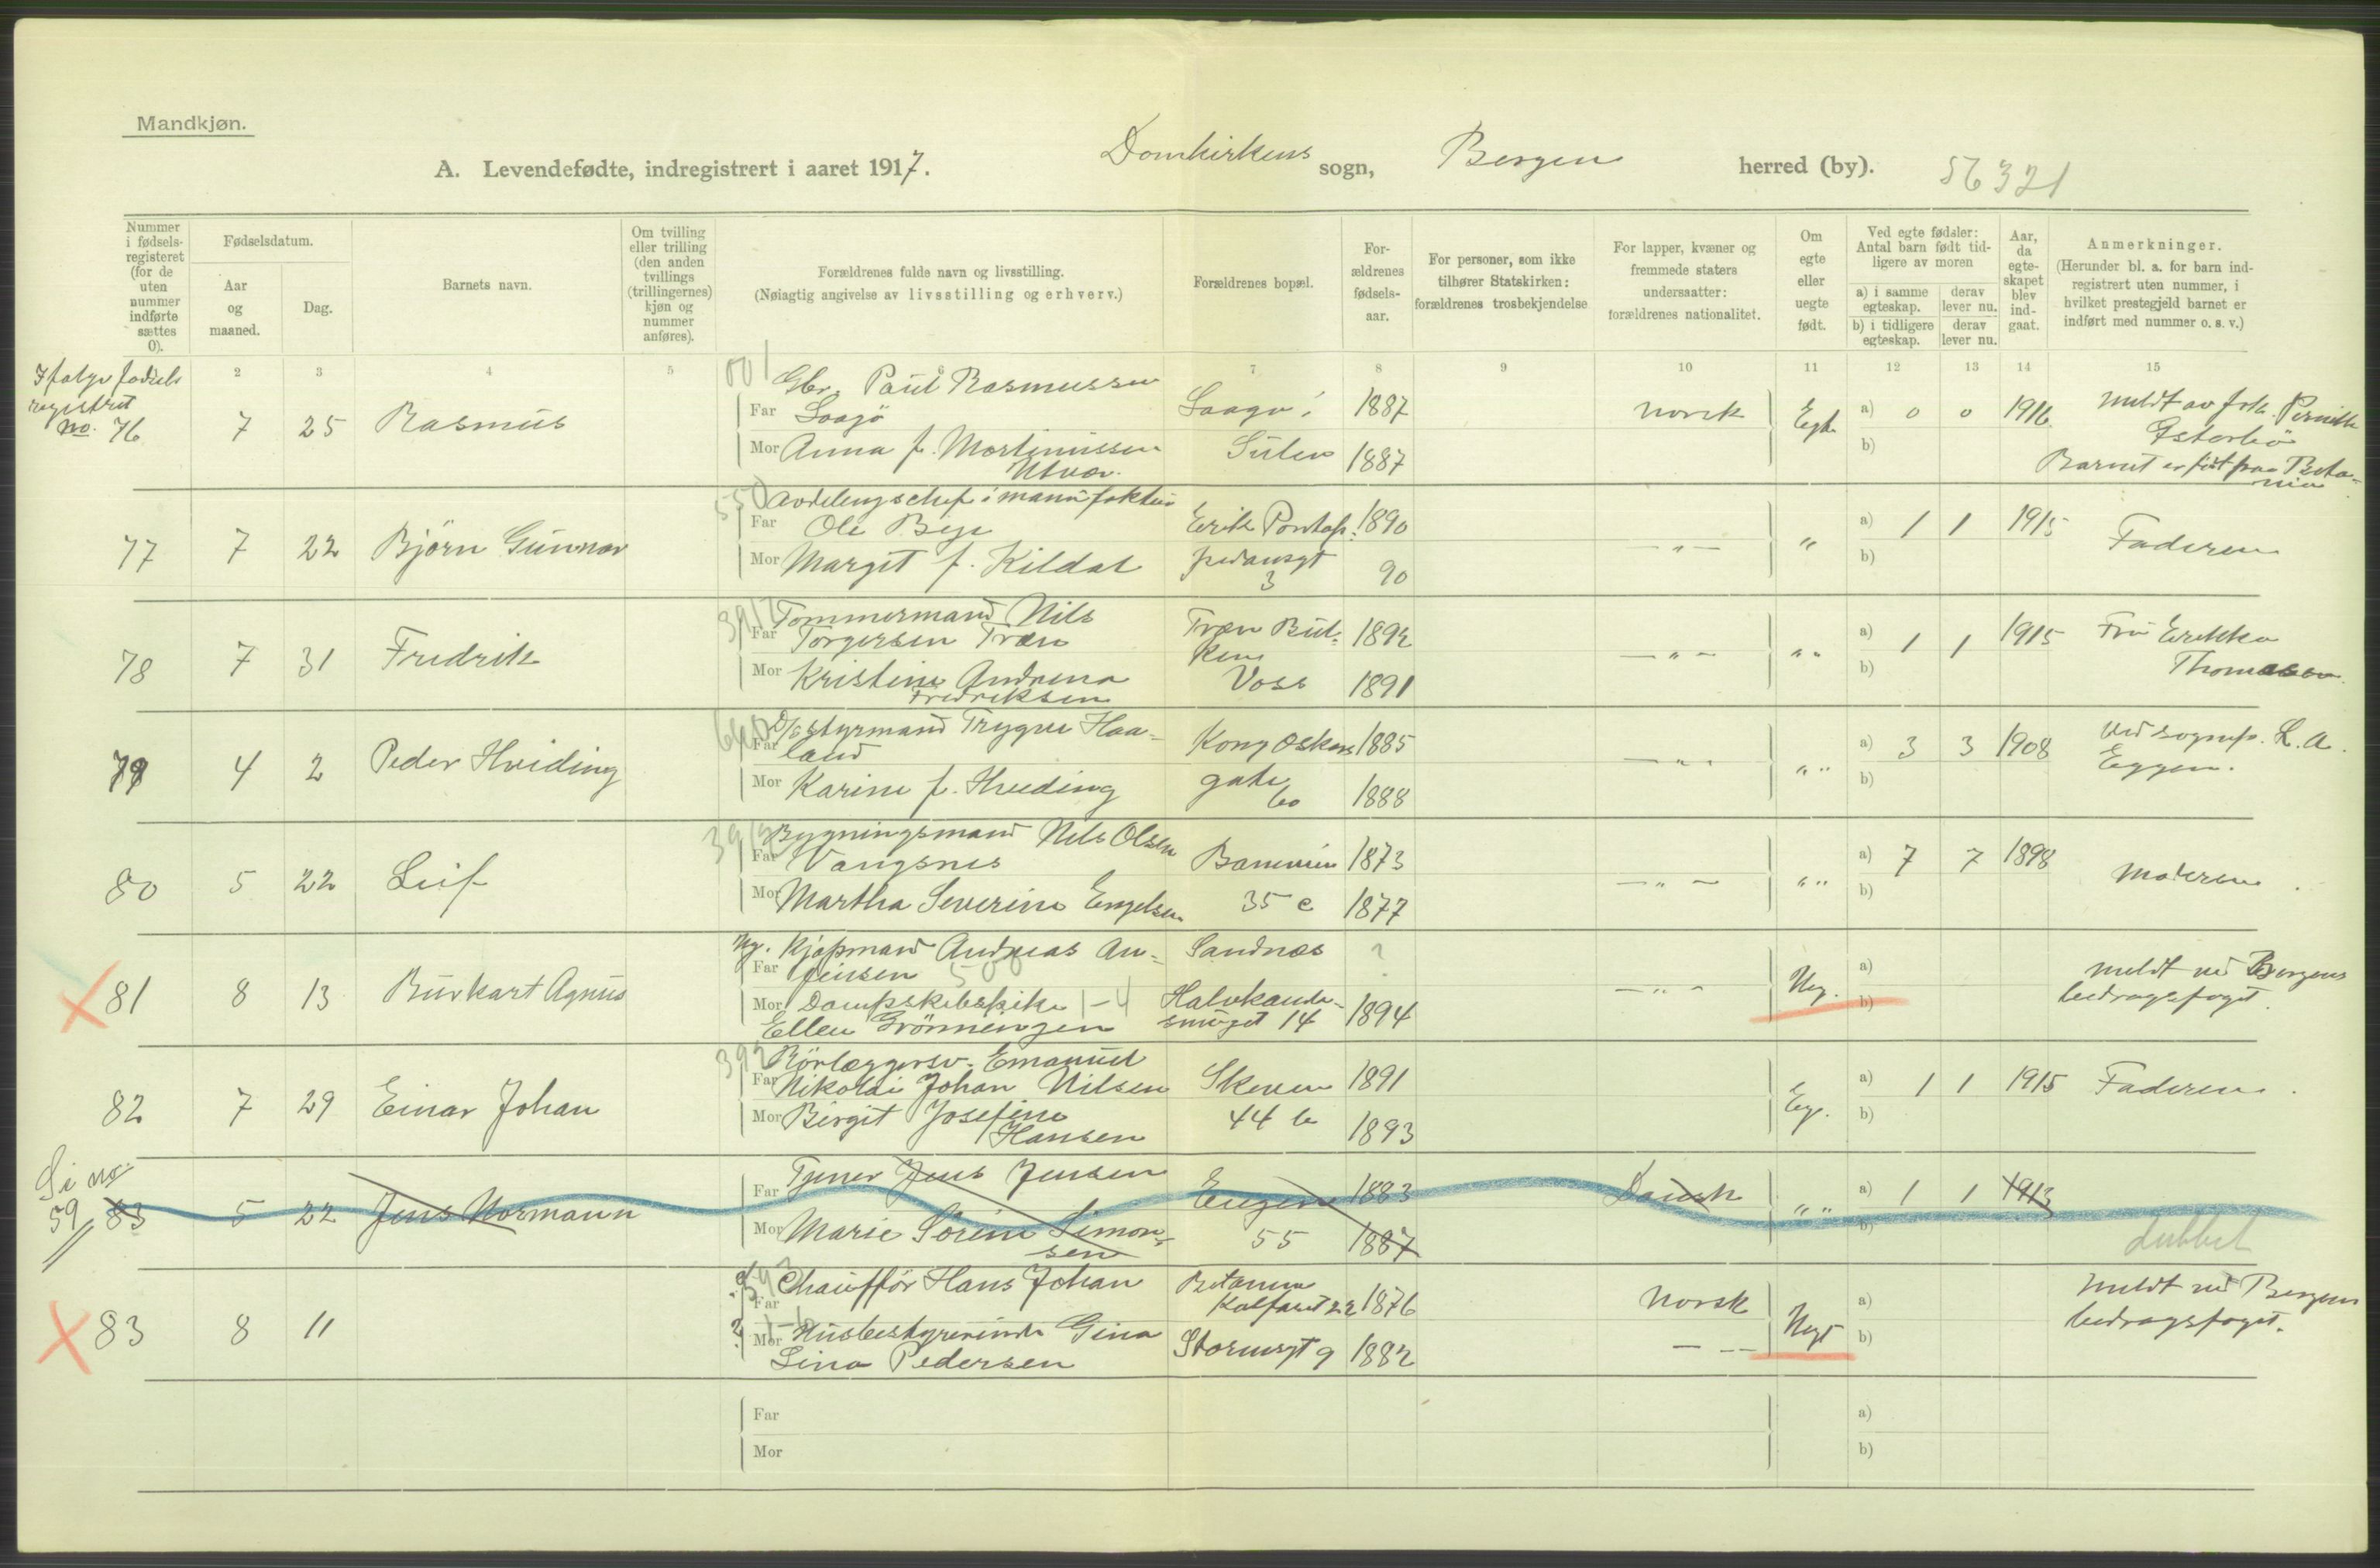 Mandkjøn.
A. Levendefødte, indregistrert i aaret 1917. Domkirkens sogn, Bergen herred (by). 56321
Nummer i fødsels-registeret (for de uten nummer indførte sættes 0).
Fødselsdatum.
Aar og maaned.
Dag.
Barnets navn.
Om tvilling eller trilling (den anden tvillings (trillingernes) kjøn og nummer anføres).
Forældrenes fulde navn og livsstilling.
(Nøiagtig angivelse av livsstilling og erhverv.)
Forældrenes bopæl.
For-ældrenes fødsels-aar.
For personer, som ikke tilhører Statskirken: forældrenes trosbekjendelse
For lapper, kvæner og fremmede staters undersaatter: forældrenes nationalitet.
Om egte eller uegte født.
Ved egte fødsler: Antal barn født tid-ligere av moren
a) i samme egteskap.
derav lever nu.
b) i tidligere egteskap.
derav lever nu.
Aar, da egte-skapet blev ind-gaat.
Anmerkninger.
(Herunder bl. a. for barn ind-registrert uten nummer, i hvilket prestegjeld barnet er indført med nummer o. s. v.)
2 3 4 5 6 7 8 9 10 11 12 13 14 15
Ifølge fødsels
registret
no. 76 7 25 Rasmus
Gbr. Paul Rasmussen
Far
Mor Anna f. Mortinussen
1887
Sulen 1887
norsk Egte a) 0 0 1916
b)
meldt av frk. Pernille
Østerbö
Barnet er født paa Beta-
nia
77 7 22 Björn Gunnar
Avdelingschef i manufaktur
Far Ole
Mor Margit f. Kildal
Erik Pontop- 1890
pedansgt
3 90
— " — " a) 1 1 1915 Faderen
b)
78 7 31 Fredrik
Tømmermand Nils
Far Torgersen Træn
Mor Kristine Andrena
Fredriksen
Træn Bul- 1892
ken
Voss 1891
— " — " " a) 1 1 1915 Fru Erikka
b) Thomassen
79 4 2 Peder Hviding
D/S styrmand Trygve Haa-
Far land
Mor Karine f. Hviding
Kong Oskars 1885
gate
60 1888
— " " " " a) 3 3 1908 ved sognepr. L. A.
b) Eggen.
80 5 22 Leif
Bygningsmand Nils Olsen
Far Vangsnes
Mor Martha Severine Engelsen
1873
35 c 1877
— " — " " a) 7 7 1898
b) Moderen.
81 8 13 Burkart Agnus
Ug. Kjøpmand Andreas An-
Far
Mor Dampskibspike 1-4
Ellen Grönnengen
Sandnæs ?
Halvkande-
smuget 14 1894
— " — Ueg. a)
b)
meldt ved Bergens
bidragsfogd.
82 7 29 Einar Johan
Rörlæggersv. Emanuel
Far Nikolai Johan Nilsen
Mor Birgit Josefine
Hansen
Skeven 1891
44 b 1893
Eg. a) 1 1 1915 Faderen.
b)
Se no.
59 83 5 22 Jens Normann
Tjener Jens Jensen
Far
Mor Marie Sörine Simon-
sen
Engen 1883
55 1887
Dansk " " a) 1 1 1913
b)
dubbel
83 8 11
Chauffør Hans Johan
Far
Mor Husbestyrerinde Gina
Lina Pedersen
Betania
Kalfaret 22 1876
Stormsgt 9 1882
norsk Uegt a)
b)
meldt ved Bergens
bidragsfogd.
Far
Mor
a)
b)